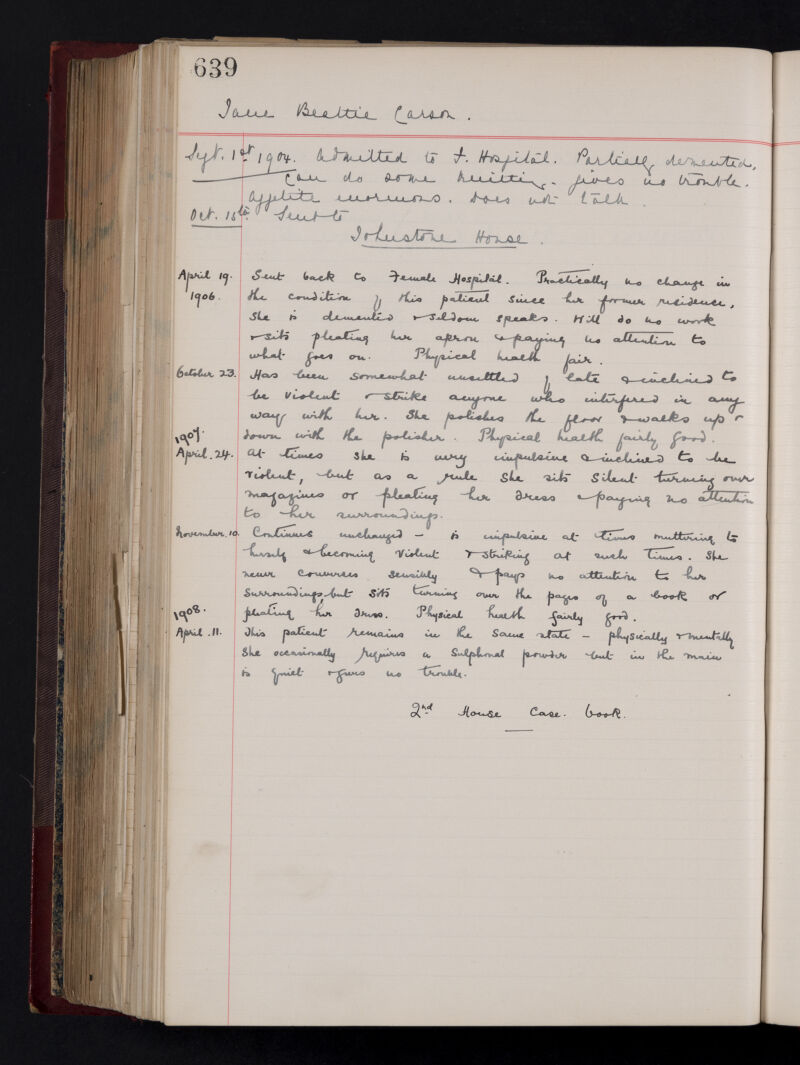 639
Jane Beattie Carson.
Sept. 1st 1904. Admitted to F. Hospital. Partially demented,
Can do some knitting. Gives no trouble.
Appetite enormous. Does not talk.
Oct. 15th. Sent to
Johnstone House.
April 19. Sent back to Female Hospital. Practically no change in
1906. the condition of this patient since her former residence,
She is demented & seldom speaks. Will do no work
& sits pleating her apron & paying no attention to
what goes on. Physical health fair.
October 23. Has been somewhat unsettled of late & inclined to
be violent & strike anyone who interfered in any
way with her. She polishes the floor & walks up &
1907. down with the polisher. Physical health fairly good.
April. 24. At times she is very impulsive & inclined to be
violent, but as a rule she sits silent turning over
magazines or pleating her dress & paying no attention
to her surroundings.
November. 10. Continues unchanged - is impulsive at times muttering to
herself & becoming violent & striking at such times. She
never converses sensibly & pays no attention to her
surroundings, but sits turning over the pages of a book or
1908. pleating her dress. Physical health fairly good.
April. 11. This patient remains in the same state - physically & mentally
She occasionally requires a Sulphonal powder but in the main
is quiet & gives no trouble.
2nd House Case. book.